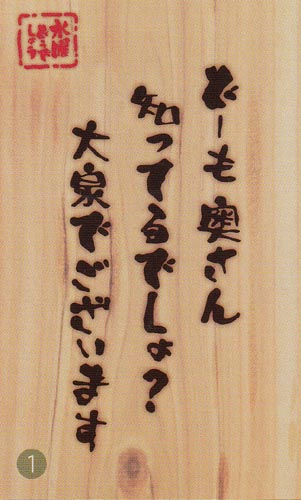 どーも奥さん
知ってるでしょ?
大泉でございます
水曜
どうでしょう
1